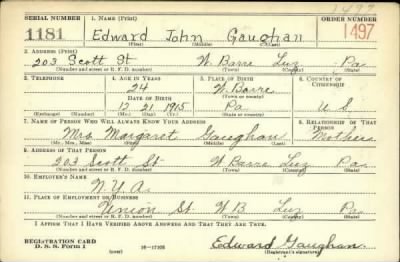 1497
SERIAL NUMBER 1. NAME (Print) ORDER NUMBER
1181 Edward John Gaughan 1497
(First) (Middle) (Last)
2. ADDRESS (Print)
203 Scott St W. Barre Luz Pa.
(Number and street or R. F. D. number) (Town) (County) (State)
3. TELEPHONE 4. AGE IN YEARS 5. PLACE OF BIRTH 6. COUNTRY OF CITIZENSHIP
24 W. Barre
DATE OF BIRTH (Town or county)
12 21 1915 Pa U S
(Exchange) (Number) (Mo.) (Day) (Yr.) (State or country)
7. NAME OF PERSON WHO WILL ALWAYS KNOW YOUR ADDRESS 8. RELATIONSHIP OF THAT PERSON
Mrs. Margaret Gaughan Mother
(Mr., Mrs., Miss) (First) (Middle) (Last)
9. ADDRESS OF THAT PERSON
203 Scott St W Barre Luz Pa.
(Number and street or R. F. D. number) (Town) (County) (State)
10. EMPLOYER'S NAME
N.Y.A.
11. PLACE OF EMPLOYMENT OR BUSINESS
Union St. W B Luz Pa.
(Number and street or R. F. D. number) (Town) (County) (State)
I AFFIRM THAT I HAVE VERIFIED ABOVE ANSWERS AND THAT THEY ARE TRUE.
REGISTRATION CARD
D. S. S. Form 1 (over) 16-17105 Edward Gaughan
(Registrant's signature)